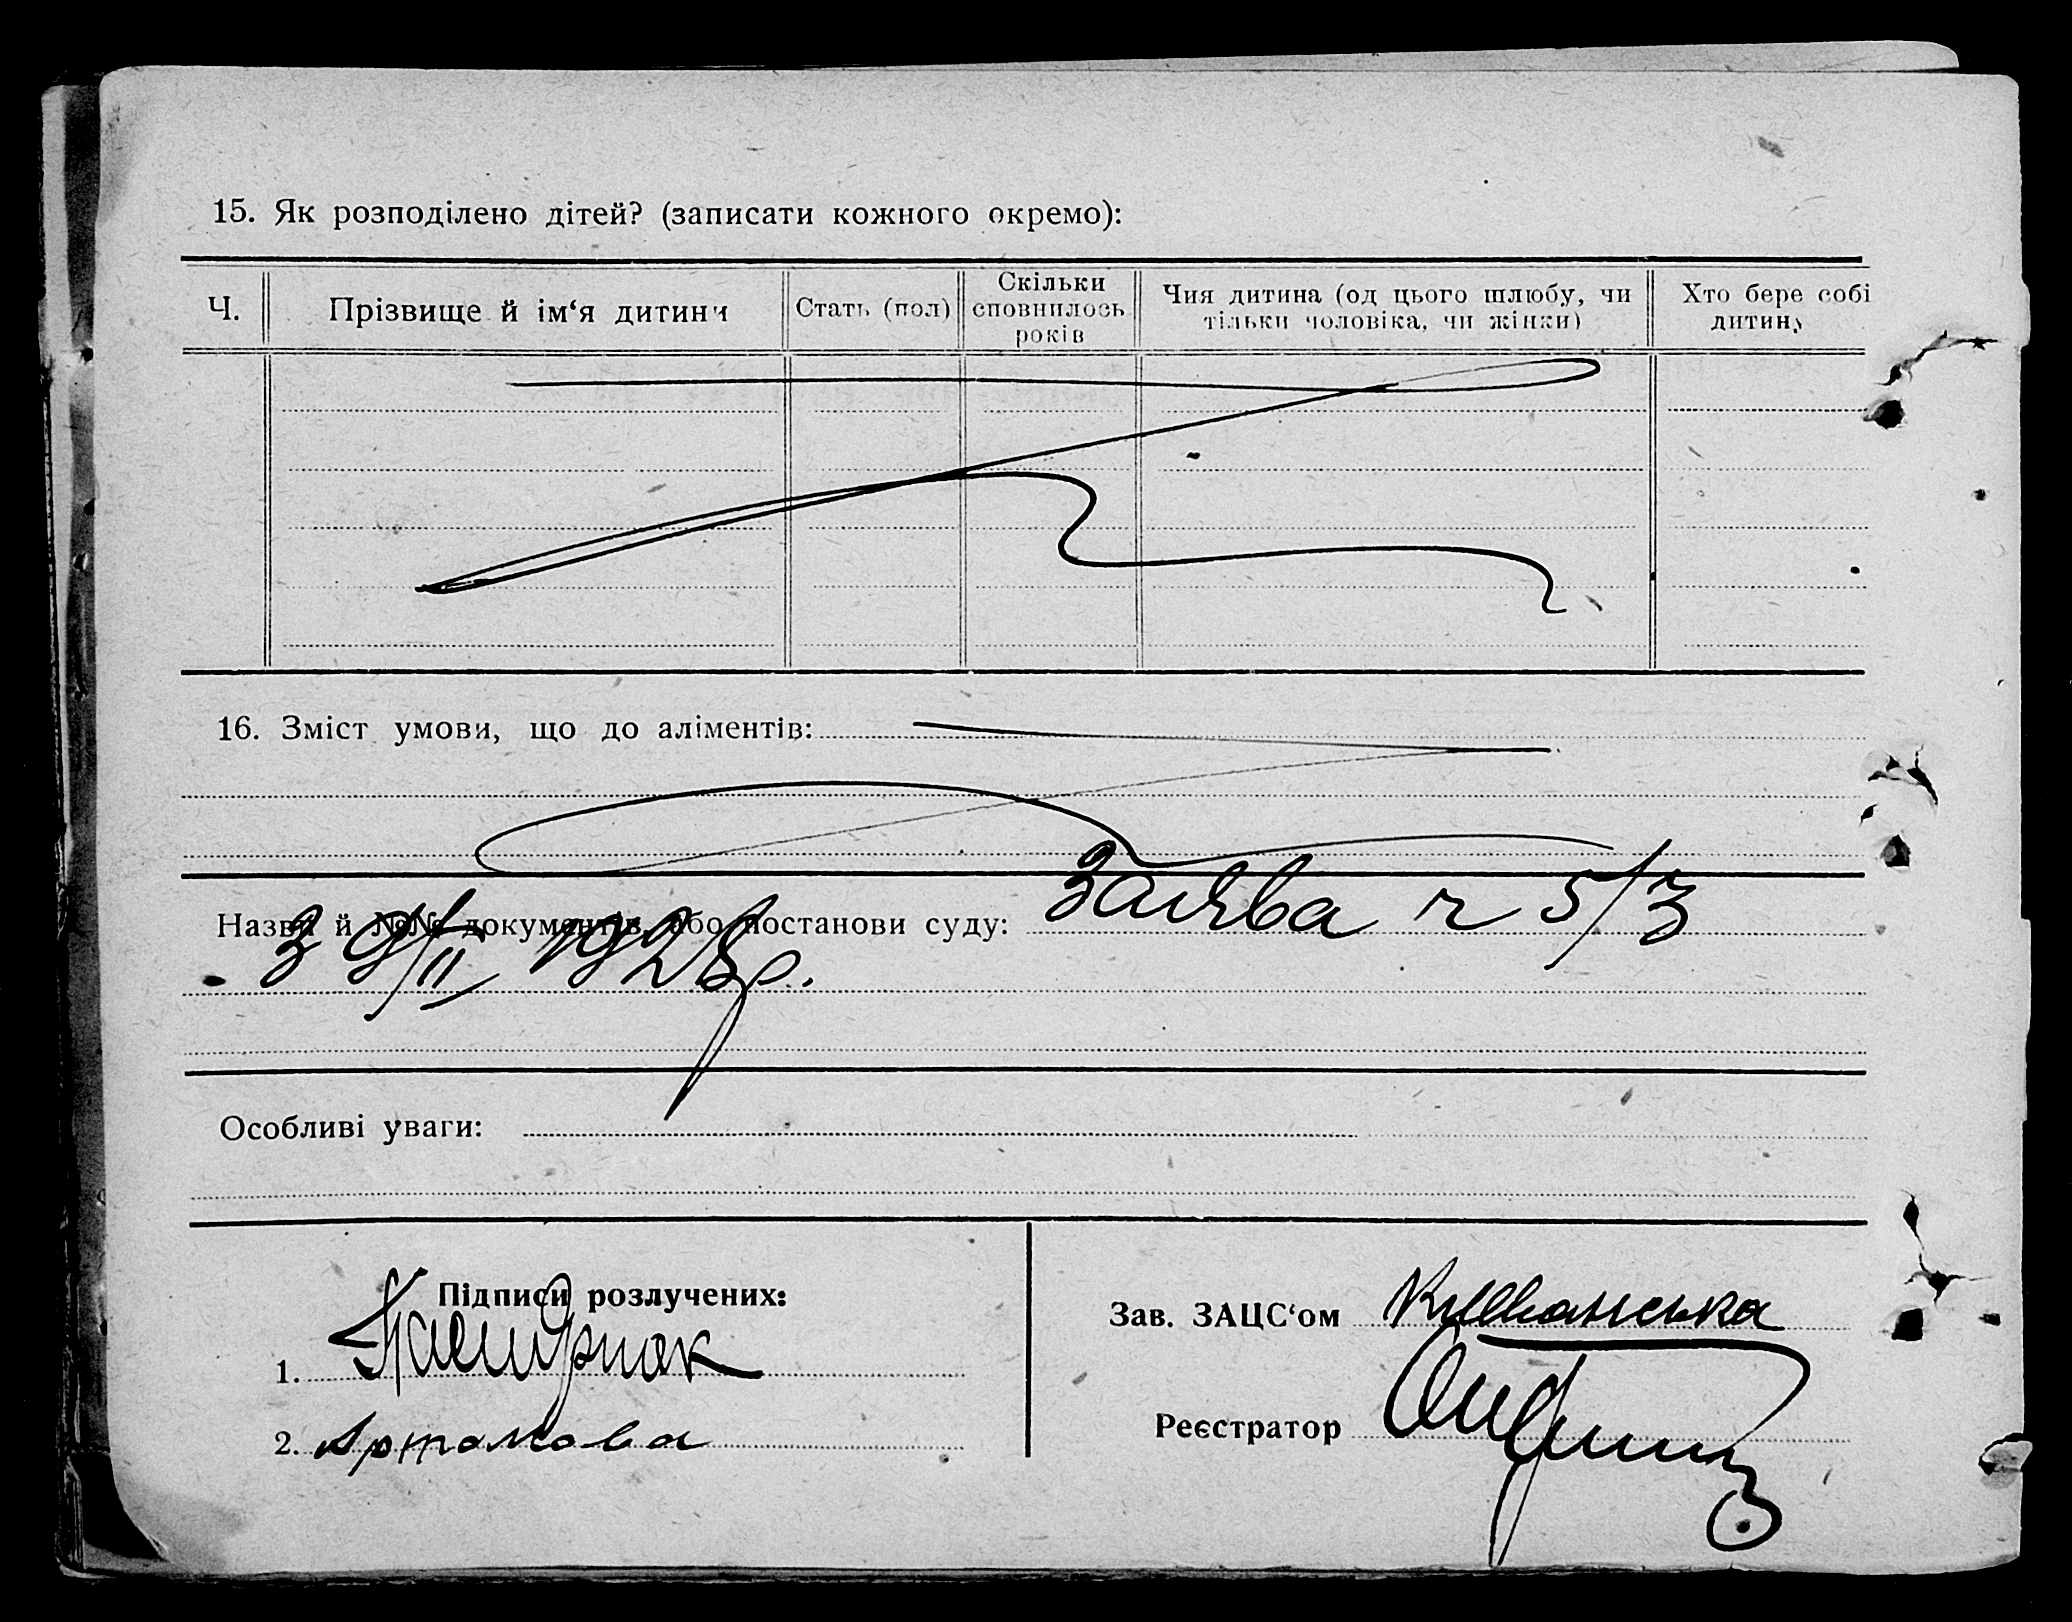 15. Як розподілено дітей? (записати кожного окремо):
Ч.
Прізвище й ім‘я дитини
Стать (пол)
Скільки
сповнилось
років
Чия дитина (од цього шлюбу, чи
тільки чоловіка, чи жінки)
Хто бере собі
дитину
16. Зміст умови, що до аліментів:
Назва й №№ документів, або постанови суду: Заява ч 5/3
з 9/II 1928р.
Особливі уваги:
Підписи розлучених:
1.
2. Артамова
Зав. ЗАЦС‘ом
Реєстратор